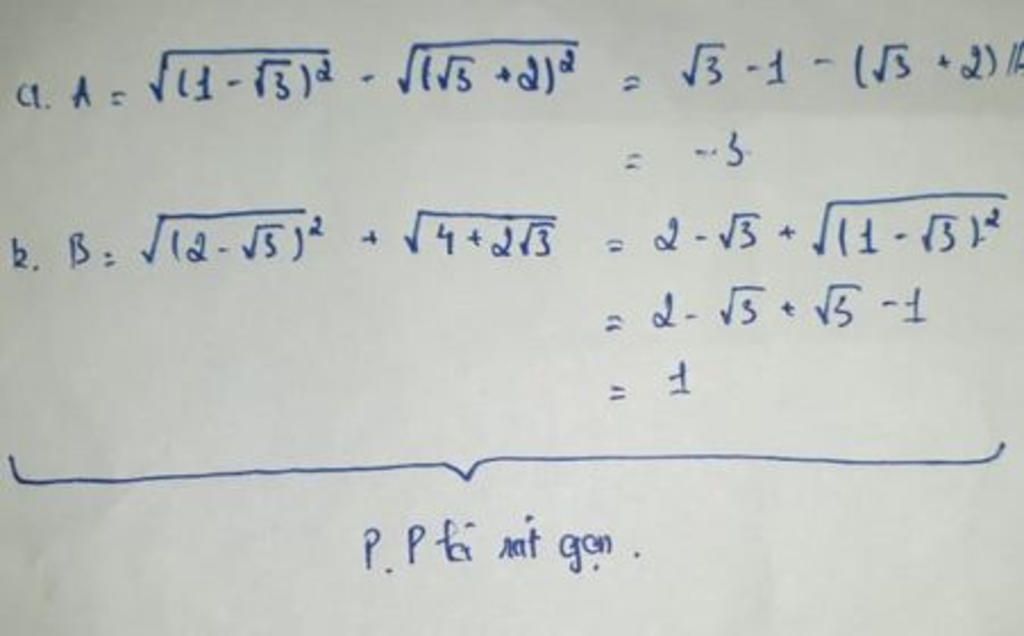 a. A = √(1-√3)² - √(√3 + 2)² = √3 - 1 - (√3 + 2)
= -3
b. B = √(2-√3)² + √4+2√3 = 2-√3 + √(1-√3)²
= 2-√3 + √3 -1
= 1
P.P rút gọn.